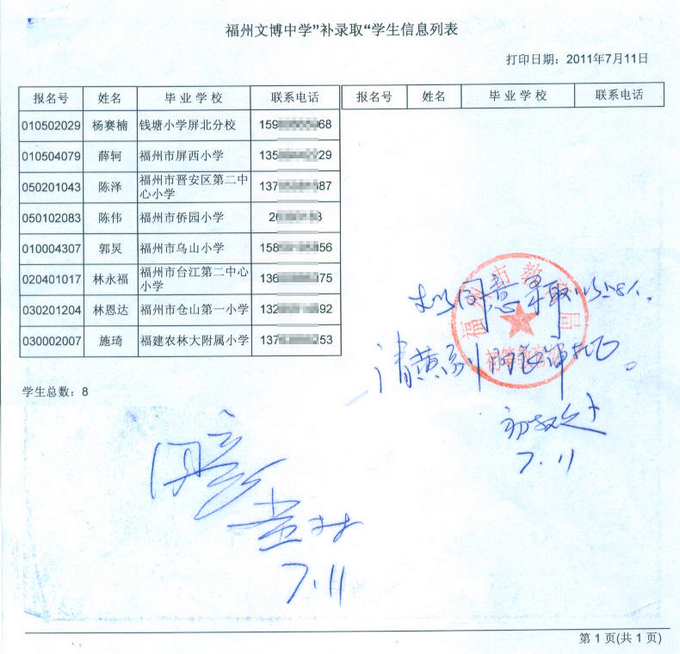 福州文博中学"补录取"学生信息列表
打印日期：2011年7月11日
报名号 姓名 毕业学校 联系电话 报名号 姓名 毕业学校 联系电话
010502029 杨赛楠 钱塘小学屏北分校 159 68
010504079 薛轲 福州市屏西小学 135 29
050201043 陈泽 福州市晋安区第二中心小学 137 87
050102083 陈伟 福州市侨园小学 2 8
010004307 郭炅 福州市乌山小学 158 856
020401017 林永福 福州市台江第二中心小学 136 75
030201204 林恩达 福州市仓山第一小学 132 92
030002007 施琦 福建农林大附属小学 137 253
学生总数：8
拟同意录取以上8人.
请黄副局长审批。
7.11
同意
7.11
福州市教育局
第1页(共1页)